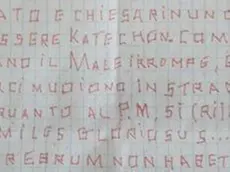 ATO E CHIESA RINUNC
SSERE KATECHON, COM
ANO IL MALE IRROMPE, E
RCI MUOIONO IN STRAD
QUANTO AL P.M. SI (RI)
MILES GLORIOSUS...
REBRUM NON HABET